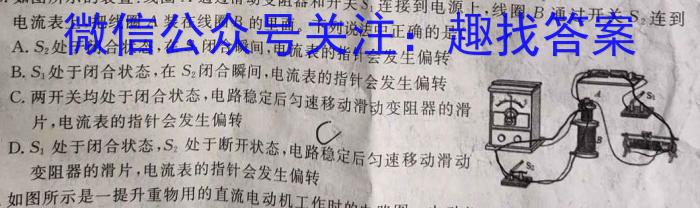 如图所示的装置,线圈A通过滑动变阻器和开关S₁连接到电源上,线圈B通过开关S₂连到
电流表上,把线圈A装在线圈B的里面,下列说法中正确的是
微信公众号关注:趣找答案
A. S₂处于闭合状态,在S₁闭合瞬间,电流表的指针会发生偏转
B. S₁处于闭合状态,在S₂闭合瞬间,电流表的指针会发生偏转
C. 两开关均处于闭合状态,电路稳定后匀速移动滑动变阻器的滑
片,电流表的指针会发生偏转
C
D. S₁处于闭合状态,S₂处于断开状态,电路稳定后匀速移动滑动
变阻器的滑片,电流表的指针会发生偏转
A
S₁
B
S₂
如图所示是一提升重物用的直流电动机工作时的电路图